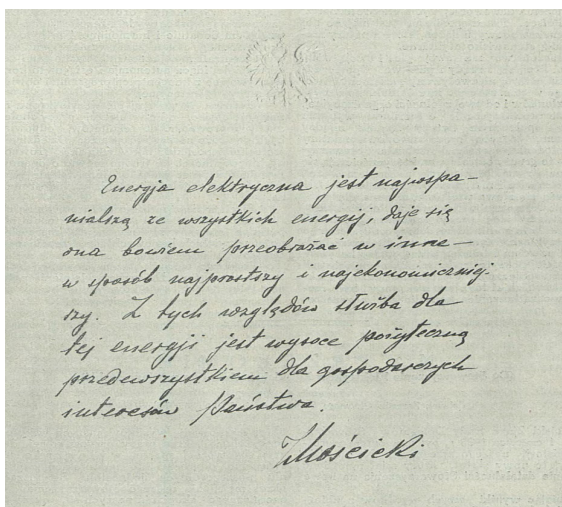 Energja elektryczna jest najwspa-
nialszą ze wszystkich energij, daje się
ona bowiem przeobrażać w inne –
w sposób najprostszy i najekonomiczniej-
szy. Z tych względów służba dla
tej energji jest wysoce pożyteczną
przedewszystkiem dla gospodarczych
interesów Państwa.
IMościcki